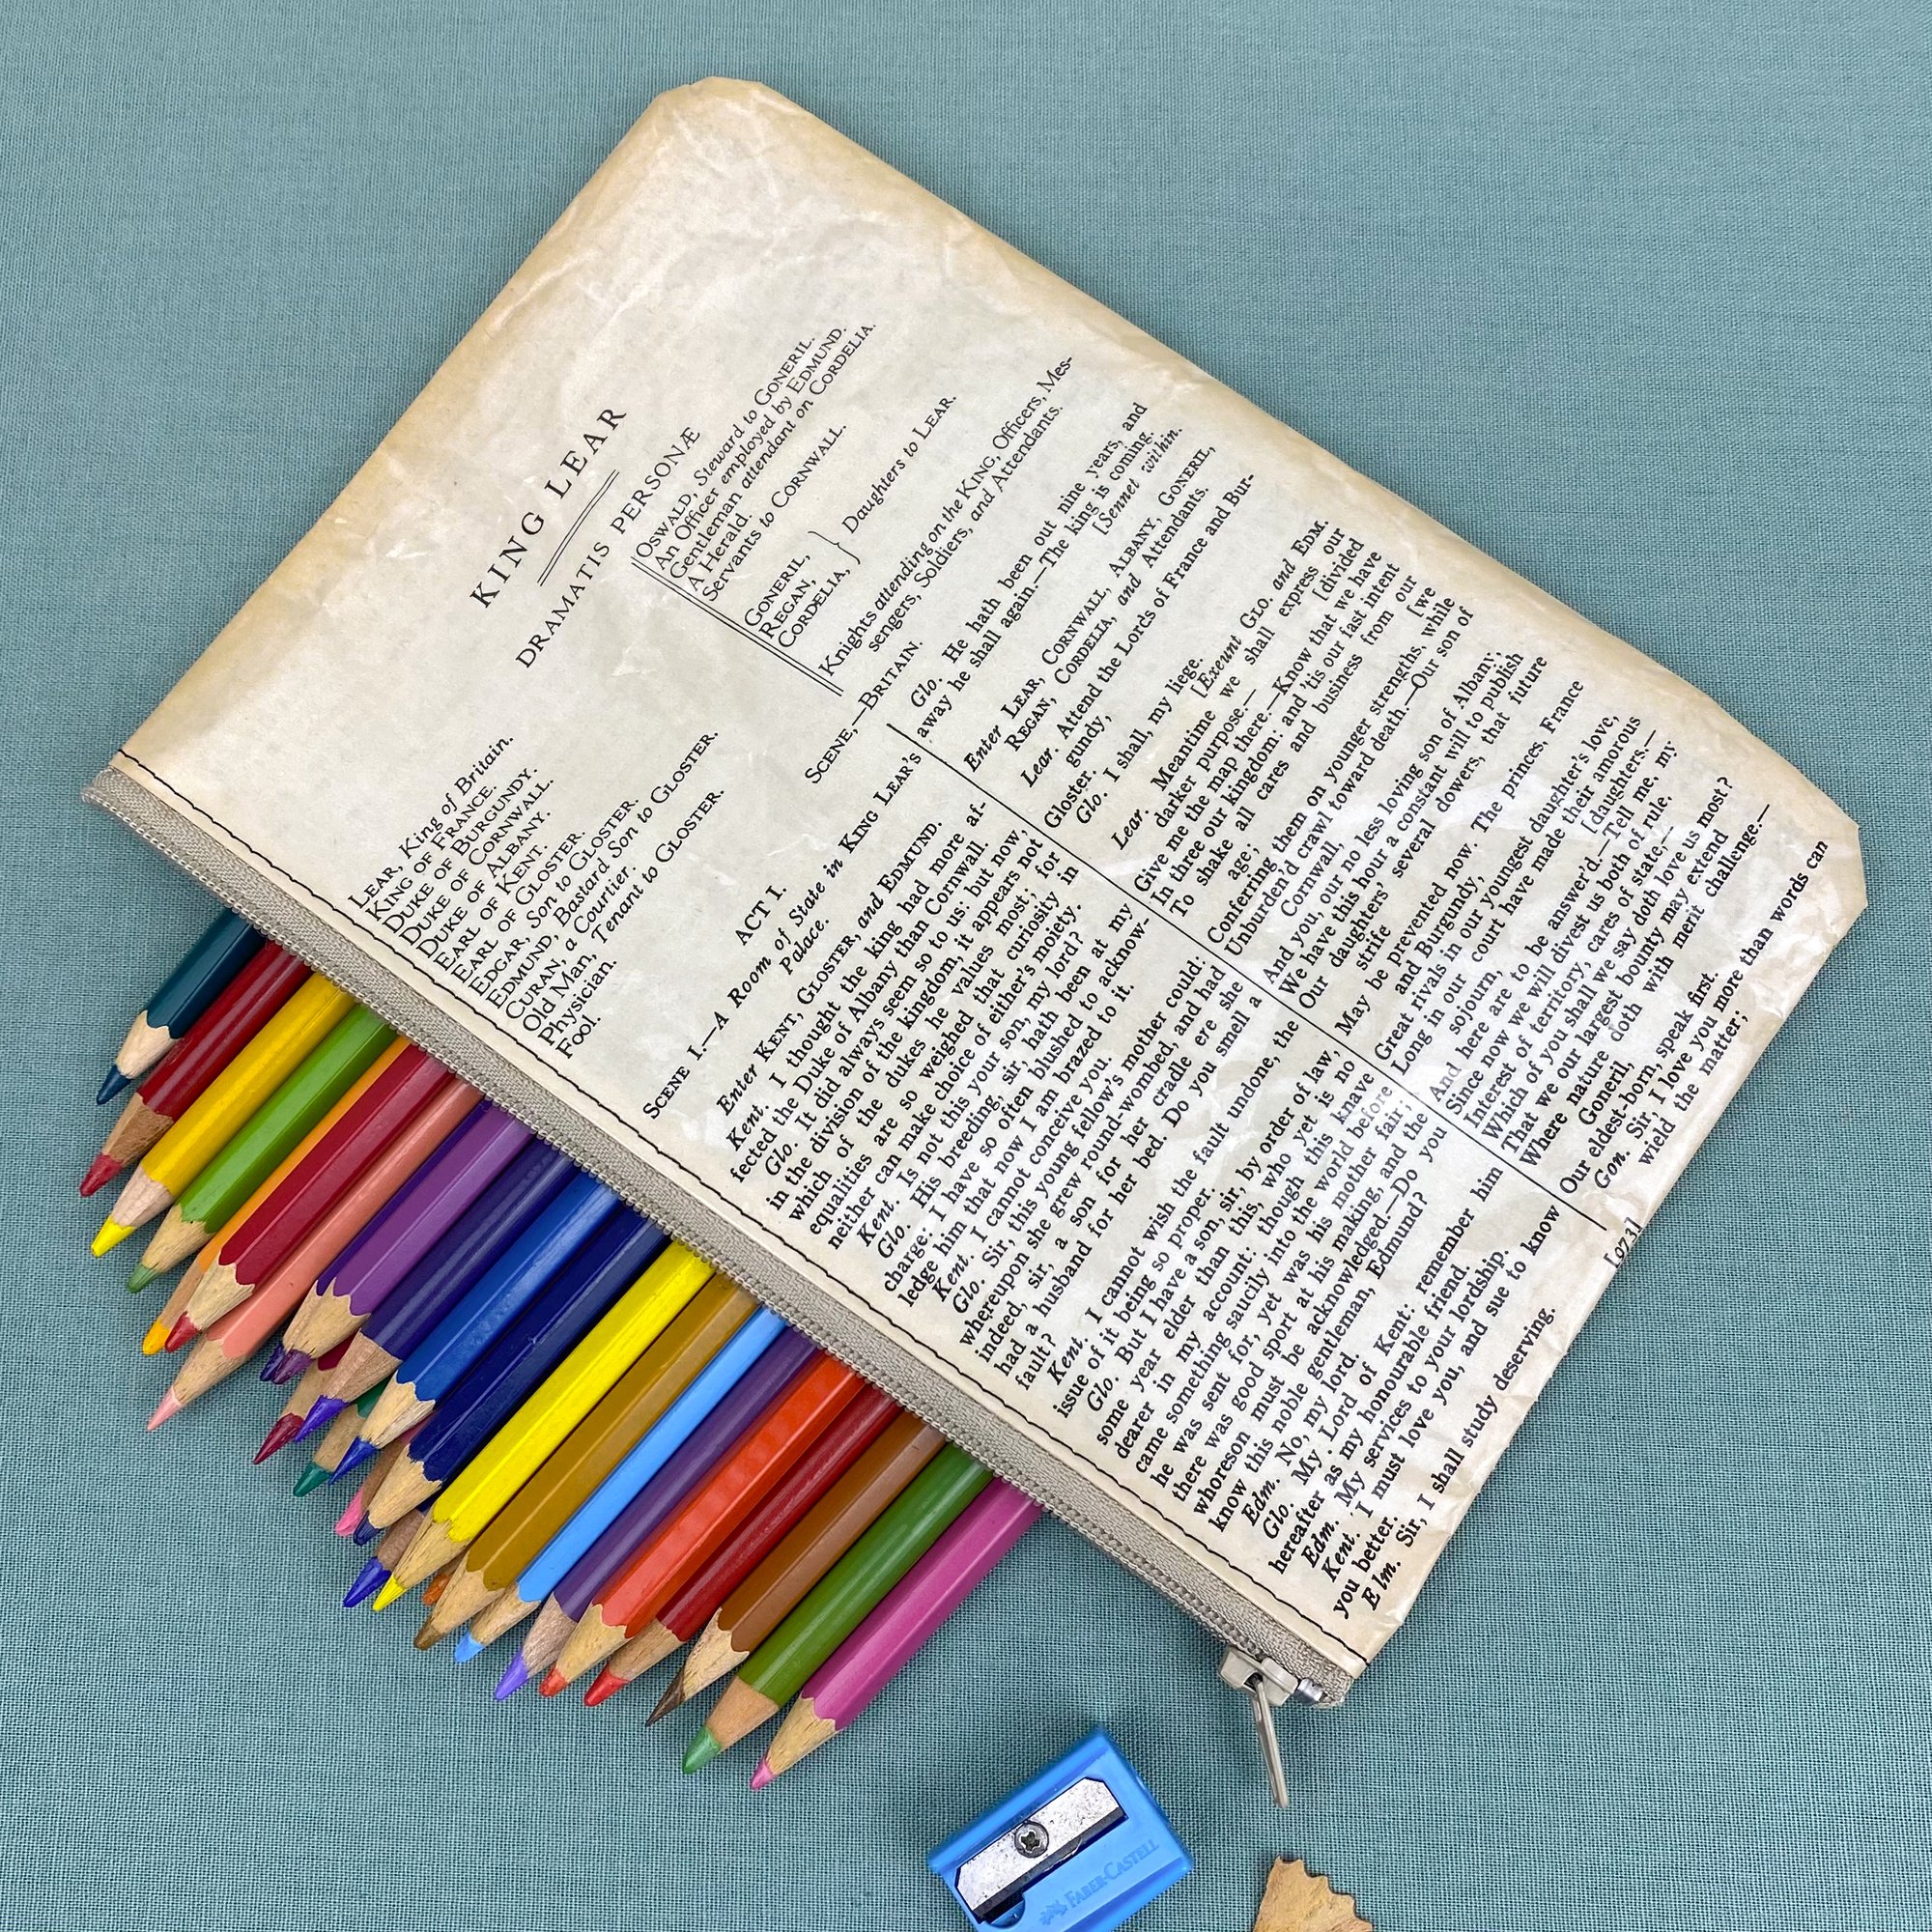 KING LEAR
DRAMATIS PERSONÆ
LEAR, King of Britain.
KING OF FRANCE.
DUKE OF BURGUNDY.
DUKE OF CORNWALL.
DUKE OF ALBANY.
EARL OF KENT.
EARL OF GLOSTER.
EDGAR, Son to GLOSTER.
EDMUND, Bastard Son to GLOSTER.
CURAN, a Courtier.
Old Man, Tenant to GLOSTER.
Physician.
Fool.
OSWALD, Steward to GONERIL.
An Officer employed by EDMUND.
Gentleman attendant on CORDELIA.
A Herald.
Servants to CORNWALL.
GONERIL,
REGAN,
CORDELIA,
Daughters to LEAR.
Knights attending on the KING, Officers, Mes-
sengers, Soldiers, and Attendants.
SCENE,—BRITAIN.
ACT I.
SCENE I.—A Room of State in KING LEAR'S
Palace.
Enter KENT, GLOSTER, and EDMUND.
Kent. I thought the king had more af-
fected the Duke of Albany than Cornwall.
Glo. It did always seem so to us: but now,
in the division of the kingdom, it appears not
which of the dukes he values most; for
equalities are so weighed that curiosity in
neither can make choice of either's moiety.
Kent. Is not this your son, my lord?
Glo. His breeding, sir, hath been at my
charge: I have so often blushed to acknow-
ledge him that now I am brazed to it.
Kent. I cannot conceive you.
Glo. Sir, this young fellow's mother could:
whereupon she grew round-wombed, and had
indeed, sir, a son for her cradle ere she
had a husband for her bed. Do you smell a
fault?
Kent. I cannot wish the fault undone, the
issue of it being so proper.
Glo. But I have a son, sir, by order of law,
some year elder than this, who yet is no
dearer in my account: though this knave
came something saucily into the world before
he was sent for, yet was his mother fair;
there was good sport at his making, and the
whoreson must be acknowledged.—Do you
know this noble gentleman, Edmund?
Edm. No, my lord.
Glo. My Lord of Kent: remember him
hereafter as my honourable friend.
Edm. My services to your lordship.
Kent. I must love you, and sue to know
you better.
Elm. Sir, I shall study deserving.
Glo. He hath been out nine years, and
away he shall again.—The king is coming.
[Sennet within.
Enter LEAR, CORNWALL, ALBANY, GONERIL,
REGAN, CORDELIA, and Attendants.
Lear. Attend the Lords of France and Bur-
gundy,
Gloster.
Glo. I shall, my liege.
[Exeunt GLO. and EDM.
Lear. Meantime we shall express our
darker purpose.— [divided
Give me the map there.—Know that we have
In three our kingdom: and 'tis our fast intent
To shake all cares and business from our
age; [we
Conferring them on younger strengths, while
Unburden'd crawl toward death.—Our son of
Cornwall,
And you, our no less loving son of Albany,
We have this hour a constant will to publish
Our daughters' several dowers, that future
strife
May be prevented now. The princes, France
and Burgundy,
Great rivals in our youngest daughter's love,
Long in our court have made their amorous
sojourn, [daughters.—
And here are to be answer'd.—Tell me, my
Since now we will divest us both of rule,
Interest of territory, cares of state,—
Which of you shall we say doth love us most?
That we our largest bounty may extend
Where nature doth with merit challenge.—
Goneril,
Our eldest-born, speak first.
Gon. Sir, I love you more than words can
wield the matter;
[973]
FABER-CASTELL